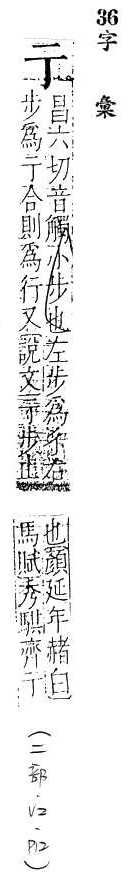 36字彙
亍
昌六切音觸小步也左步為彳右
步爲亍合則爲行又說文亍步止
也顏延年赭白
馬賦秀騏齊亍
(二部·V2·P12)